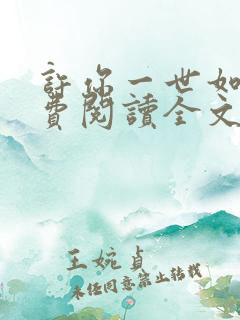 許你一世如
費閱讀全文
王婉貞
未经同意禁止转载